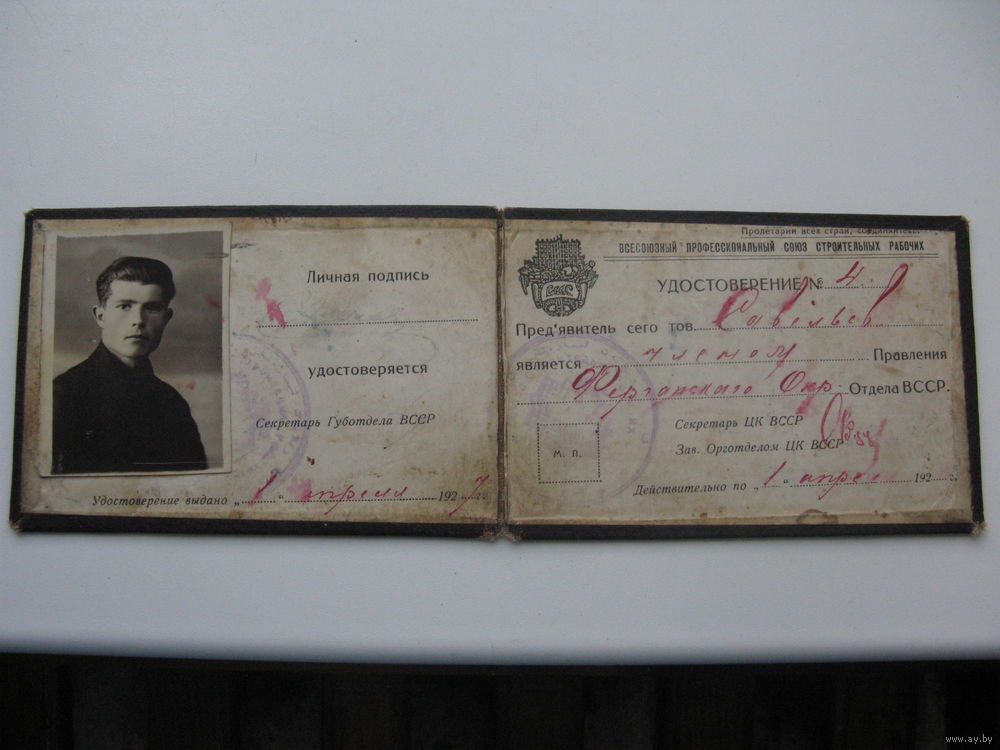 Личная подпись
удостоверяется
Секретарь Губотдела ВССР
Удостоверение выдано „ 1 “ апреля 192 7 г.
Пролетарии всех стран, соединяйтесь!
ВСЕСОЮЗНЫЙ ПРОФЕССИОНАЛЬНЫЙ СОЮЗ СТРОИТЕЛЬНЫХ РАБОЧИХ
ВССР
УДОСТОВЕРЕНИЕ № 4.
Пред'явитель сего тов. Савельев
является членом Правления
Ферганского Окр. Отдела ВССР.
Секретарь ЦК ВССР
Зав. Орготделом ЦК ВССР
М. П.
Действительно по „ 1 “ апрел 192 г.
www.ay.by